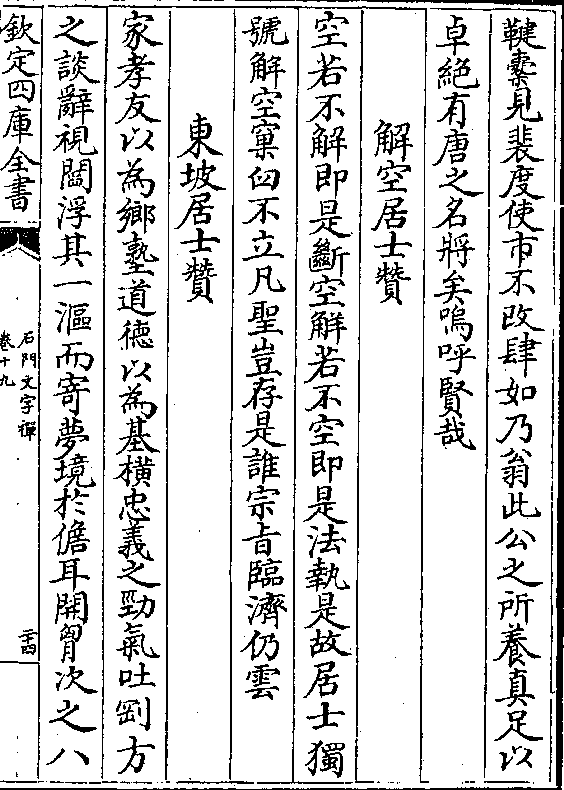 鞬櫜見裴度使市不改肆如乃翁此公之所養真足以
卓絕有唐之名將矣嗚呼賢哉
解空居士贊
空若不解即是斷空解若不空即是法執是故居士獨
號解空窠臼不立凡聖豈存是誰宗旨臨濟仍雲
東坡居士贊
家孝友以為鄉塾道德以為基橫忠義之勁氣吐剴方
之談辭視閻浮其一漚而寄夢境於儋耳開胷次之八
欽定四庫全書
石門文字禪
卷十九
二十四